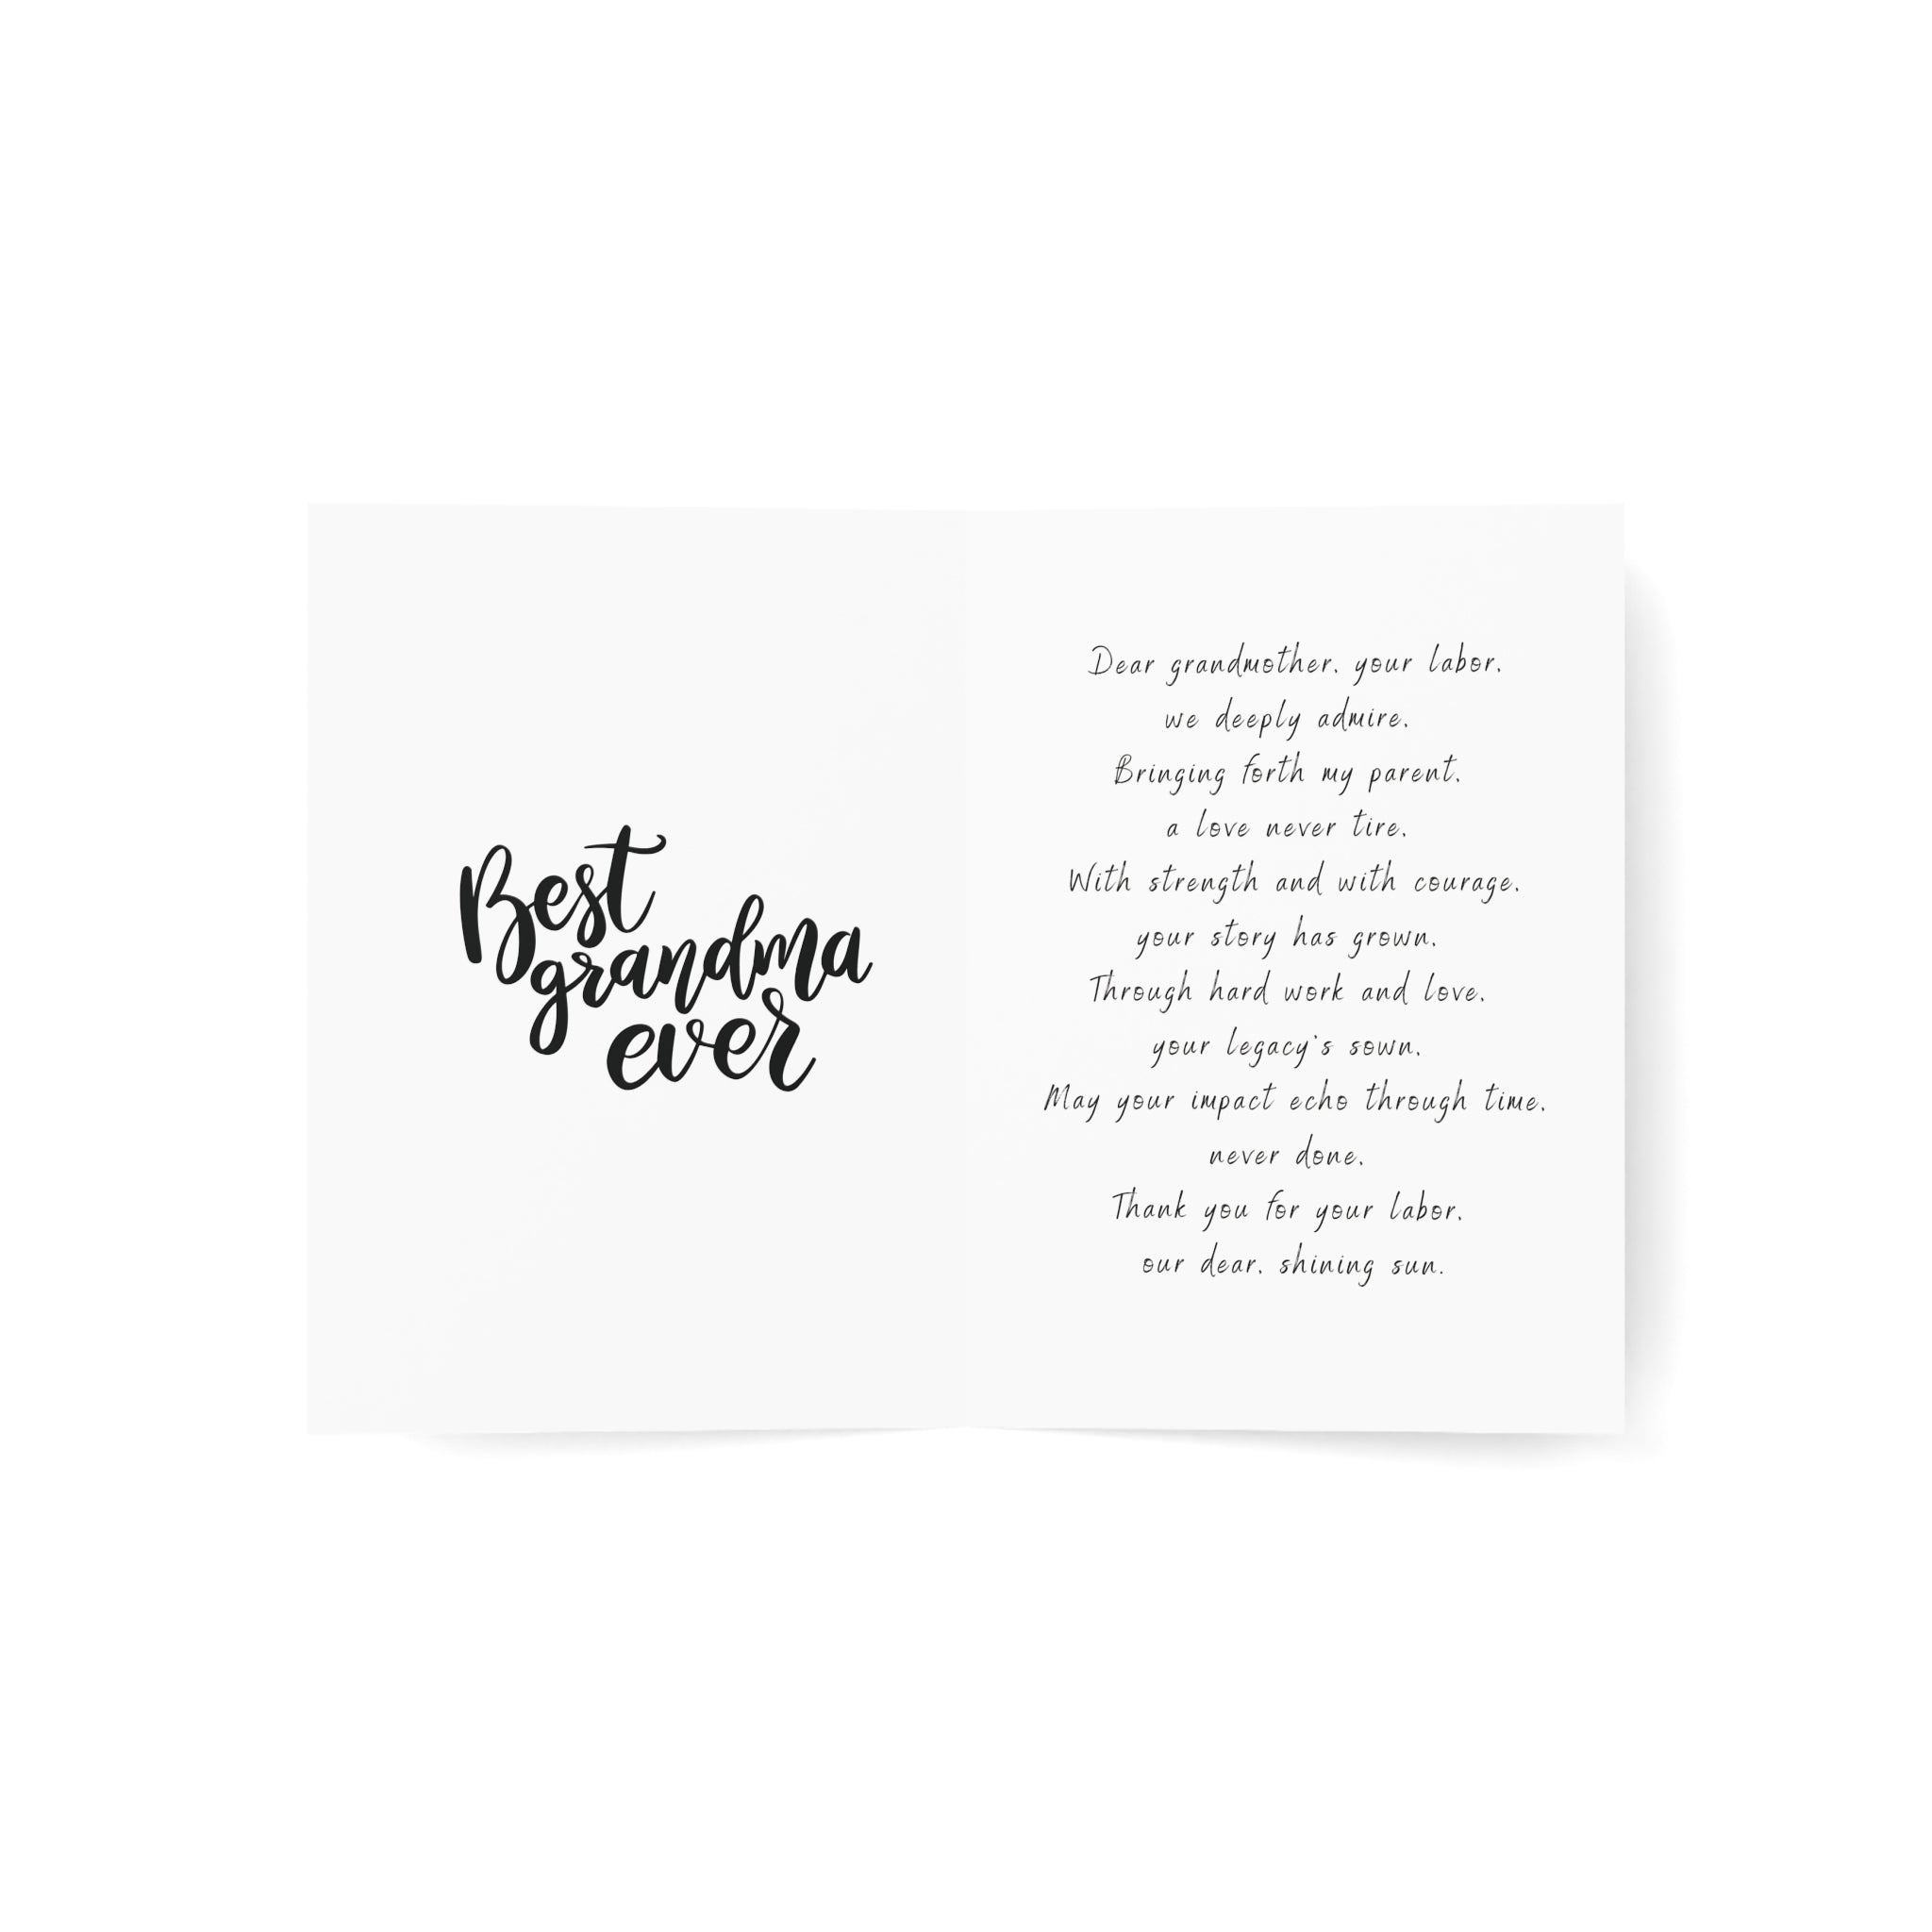 Best
grandma
ever
Dear grandmother, your labor,
we deeply admire,
Bringing forth my parent,
a love never tire.
With strength and with courage,
your story has grown,
Through hard work and love,
your legacy's sown.
May your impact echo through time,
never done,
Thank you for your labor,
our dear, shining sun.